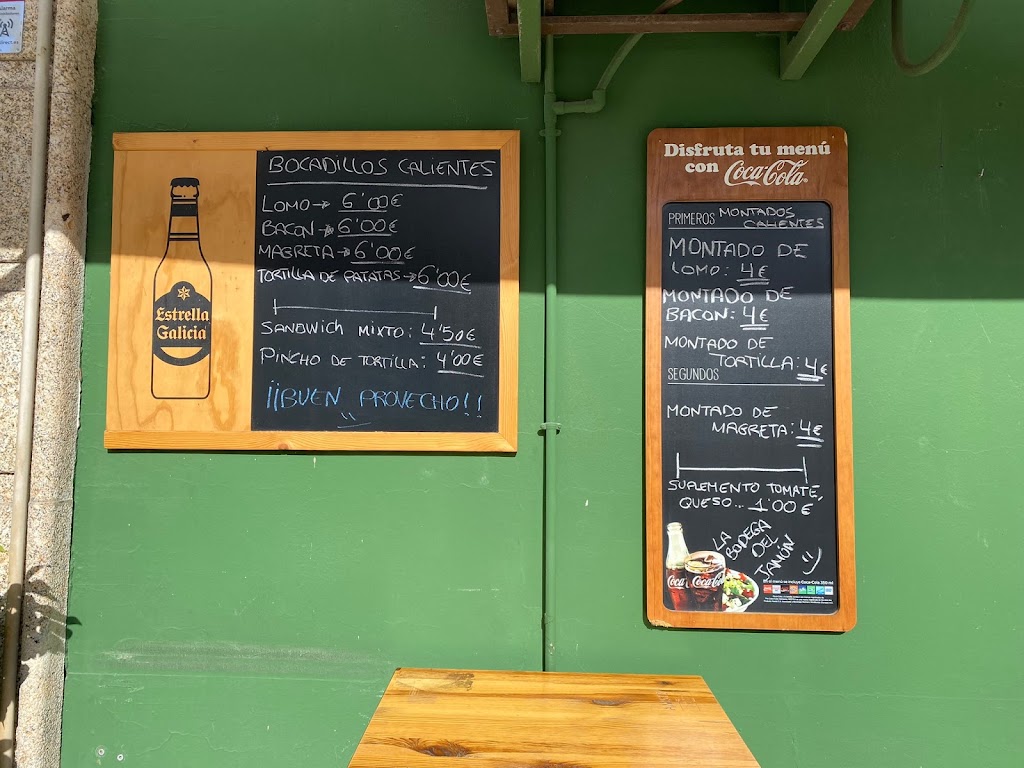 BOCADILLOS CALIENTES
LOMO → 6'00€
BACON → 6'00€
MAGRETA → 6'00€
TORTILLA DE PATATAS → 6'00€
SANDWICH MIXTO: 4'50€
PINCHO DE TORTILLA: 4'00€
¡¡BUEN PROVECHO!!
Estrella
Galicia
Disfruta tu menú
con Coca-Cola
PRIMEROS MONTADOS
CALIENTES
MONTADO DE
LOMO: 4€
MONTADO DE
BACON: 4€
MONTADO DE
TORTILLA: 4€
SEGUNDOS
MONTADO DE
MAGRETA: 4€
SUPLEMENTO TOMATE,
QUESO... 1'00€
LA
BODEGA
DEL
JAMÓN
Coca-Cola